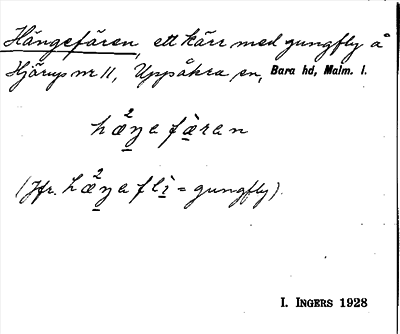 Hängefären, ett kärr med gungfly å
Hjärup nr 11, Uppåkra sn, Bara hd, Malm. l.
hæ̲²ŋa fæ̲̀ran
(Jfr. hæ̲²ŋa flì̲ = gungfly).
I. INGERS 1928